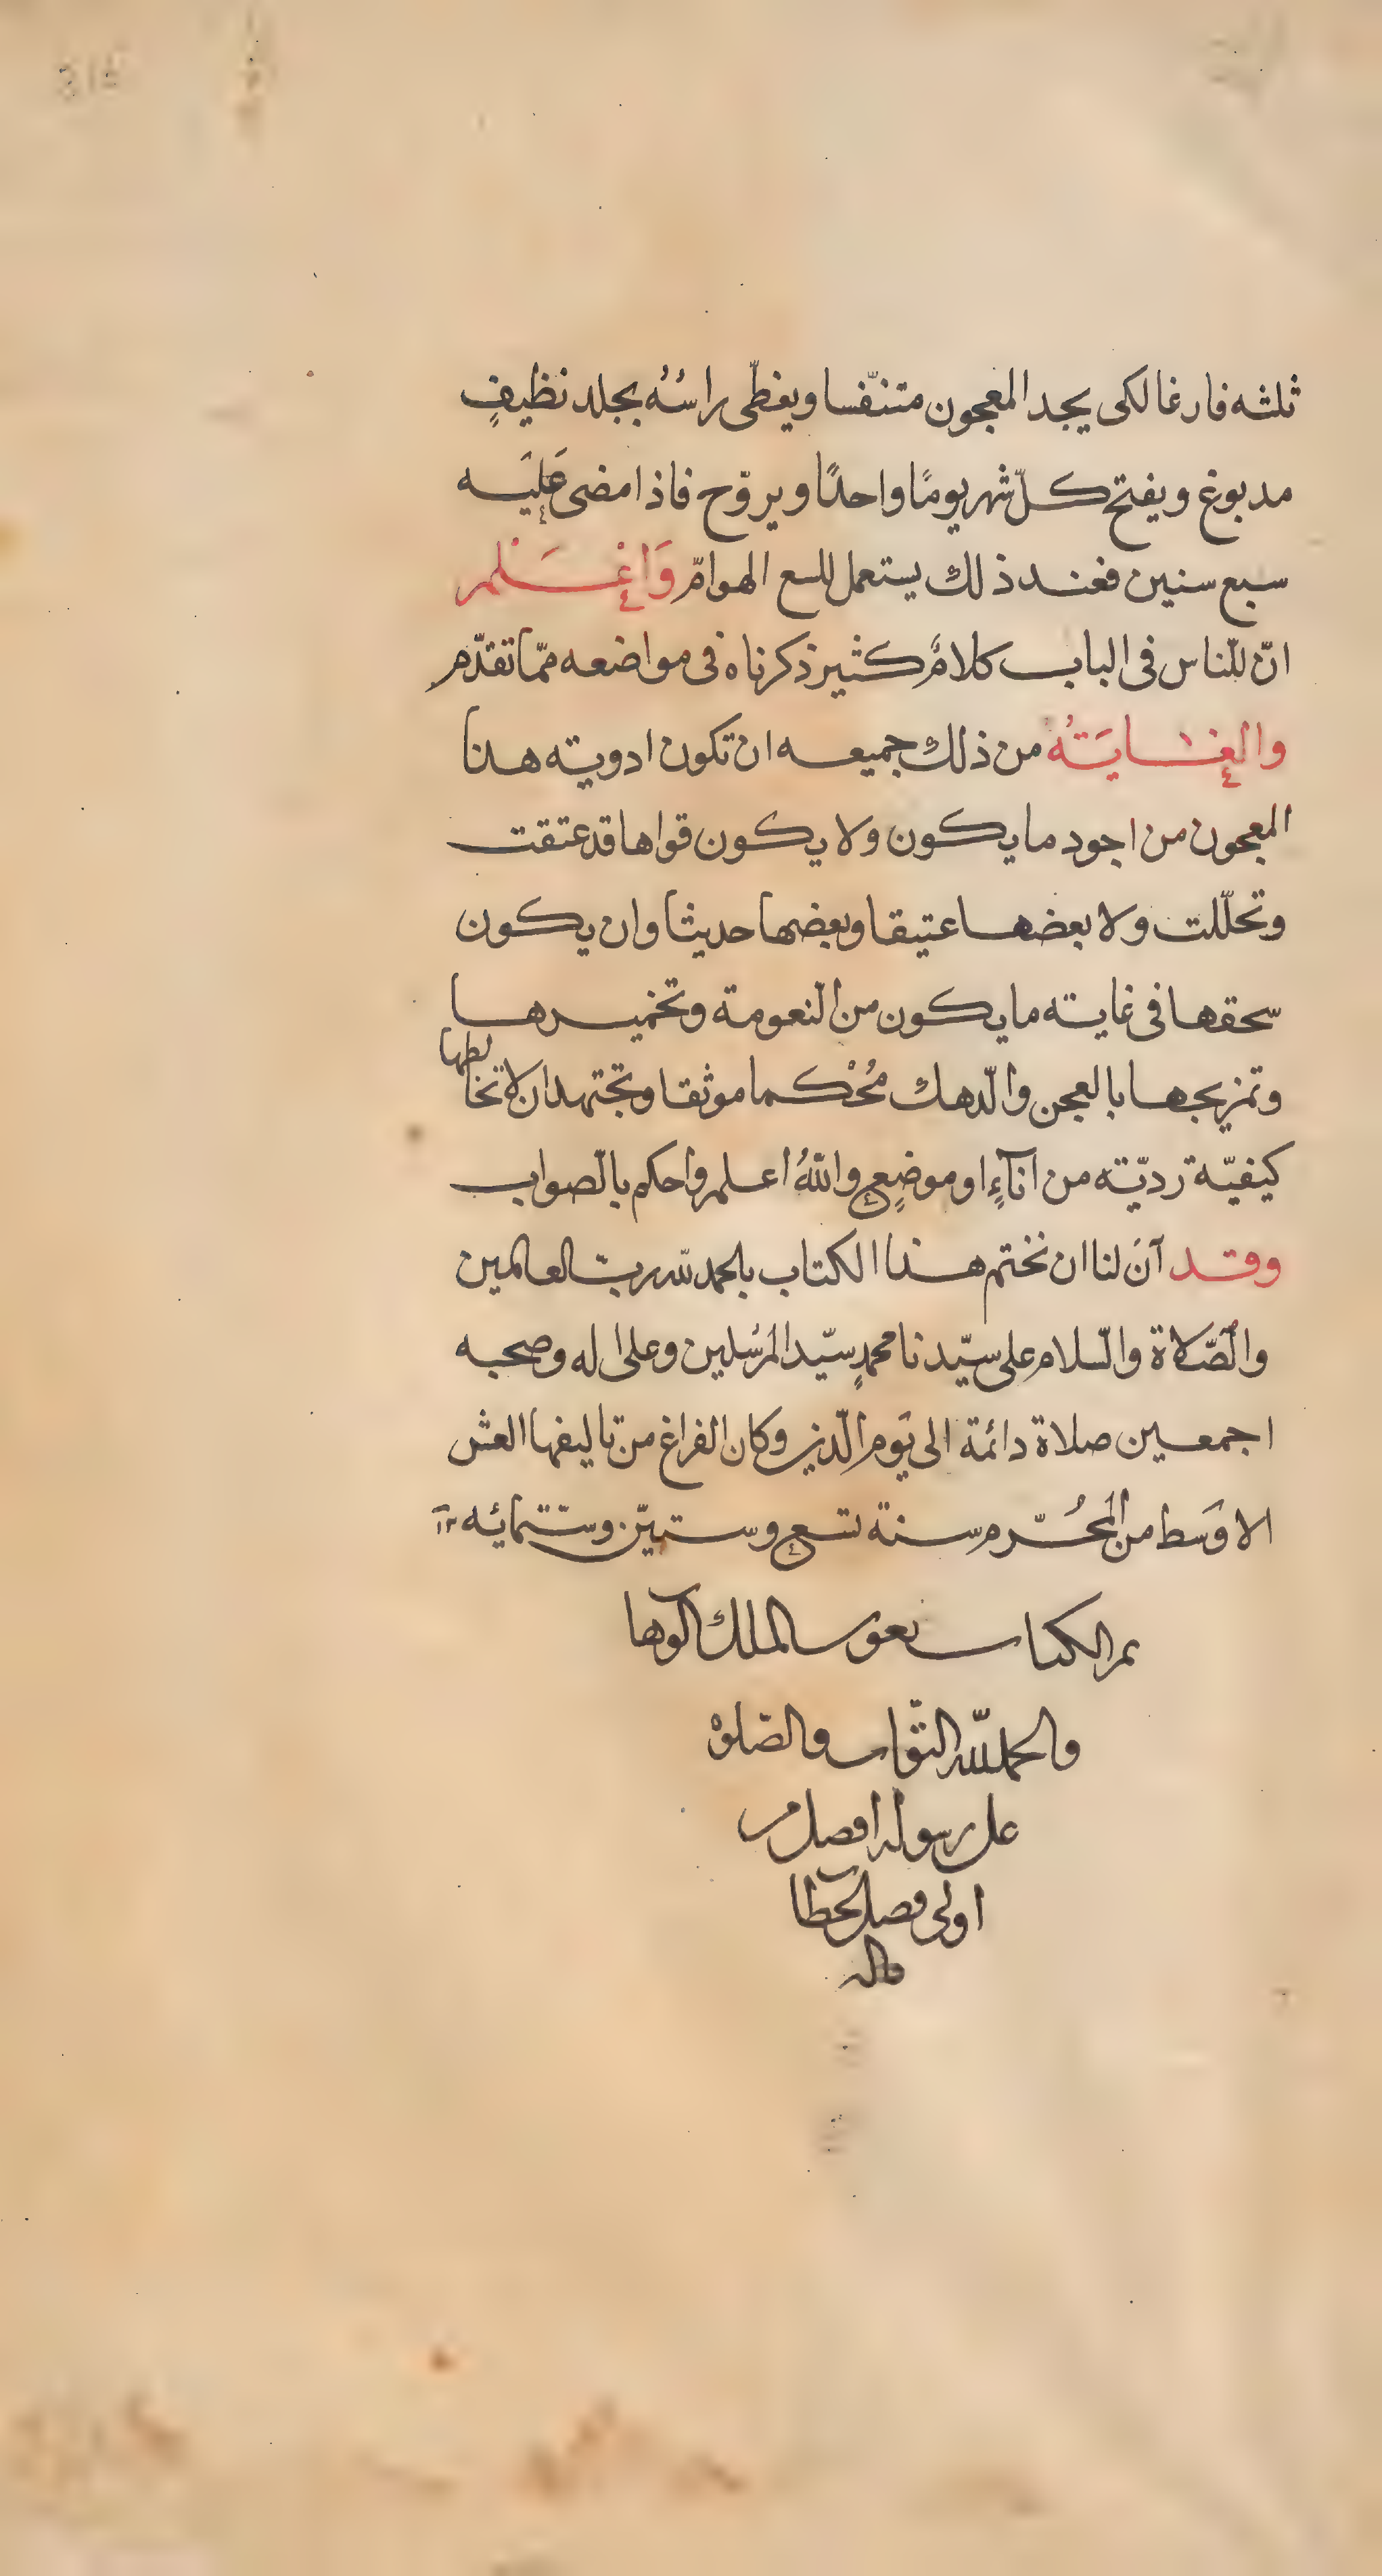 ثلثه فارغا لكى يجد المعجون متنفّسا ويغطّى راسُهُ بجلد نظيفٍ
مدبوغ ويفتح كلّ شهر يومًا واحدًا ويروّح فاذا مضى عَليَه
سبع سنين فعند ذلك يستعمل للسع الهوامّ وَاعْلم
انّ للنّاس فى الباب كلامٌ كثير ذكرناه فى مواضعه ممّا تقدّم
والغايَتُه من ذلك جميعه ان تكون ادويته هذا
المعجون من اجود ما يكون ولا يكون قواها قد عتقت
وتحلّلت ولا بعضها عتيقا وبعضها حديثا وان يكون
سحقها فى غايته ما يكون من النّعومة وتخميرها
وتمزيجها بالعجن والدّهك مُحْكما موثقا وتجتهد ان لا تخالطها
كيفيّة رديّته من اناءٍ او موضعٍ واللّهُ اعلم واحكم بالصّواب
وقد آنَ لنا ان نختم هذا الكتاب بالحمد للّه ربّ العالمين
والصَّلاة والسّلام على سيّدنا محمدٍ سيّد المرسَلين وعلى اله وصحبه
اجمعين صلاة دائمة الى يَوم الدّين وكان الفراغ من تاليفها العشر
الاوَسط من المحُرّم سنة تسع وستيّن وستّمائه ١٢
تم الكتاب بعون الملك الوهاب
والحمد للّه التوّاب والصّلوة
على رسوله افضل من
اولى فصل الخطاب
واله